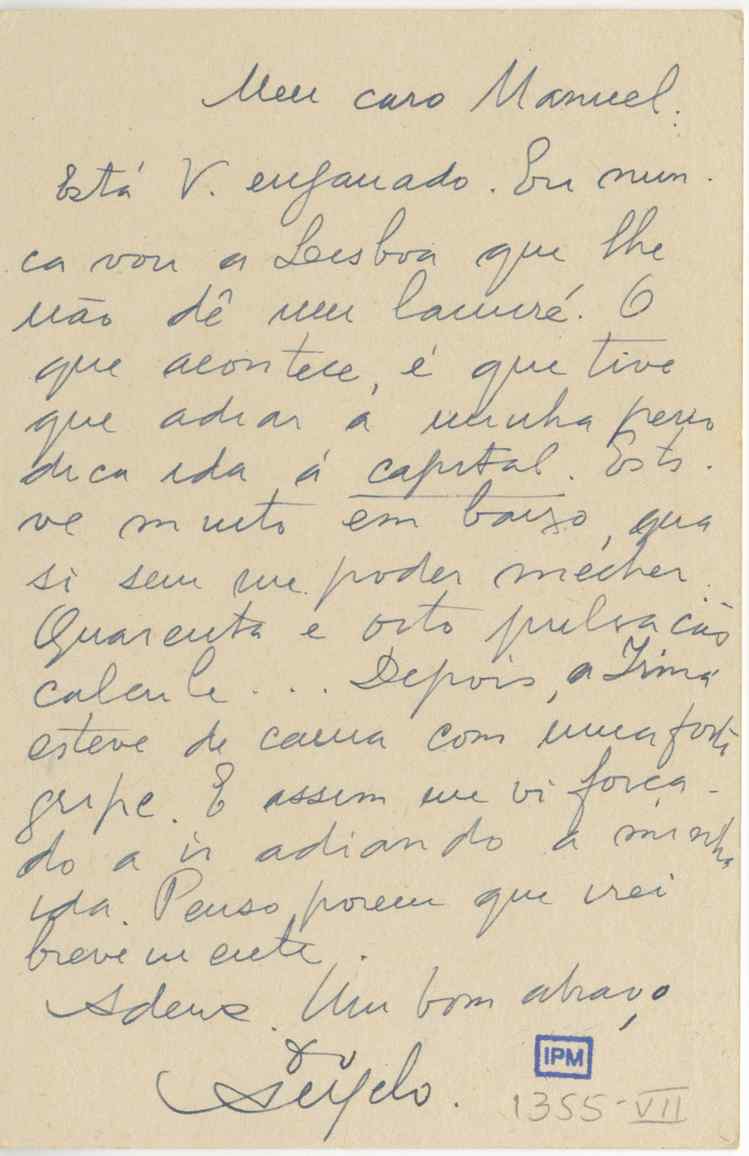 Meu caro Manuel.
Está V. enganado. Eu nun-
ca vou a Lisboa que lhe
não dê um lamiré. O
que acontece, é que tive
que adiar a minha perio
dica ida á capital. Esti-
ve muito em baixo, qua
si sem me poder mecher.
Quarenta e oito pulsações
calcule... Depois, a Irmã
esteve de cama com uma forte
gripe. E assim me vi força-
do a ir adiando a minha
ida. Penso, porem que irei
brevemente.
Adeus. Um bom abraço
do
Ângelo.
IPM
1355-VII